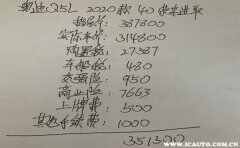 奥迪Q5L 2020款 40 快来进取
指导价: 387800
实际车价: 314800
购置税: 27587
车船税: 480
交强险: 950
商业险: 7663
上牌费: 500
其他手续费: 1000
351300
WWW.ICAUTO.COM.CN